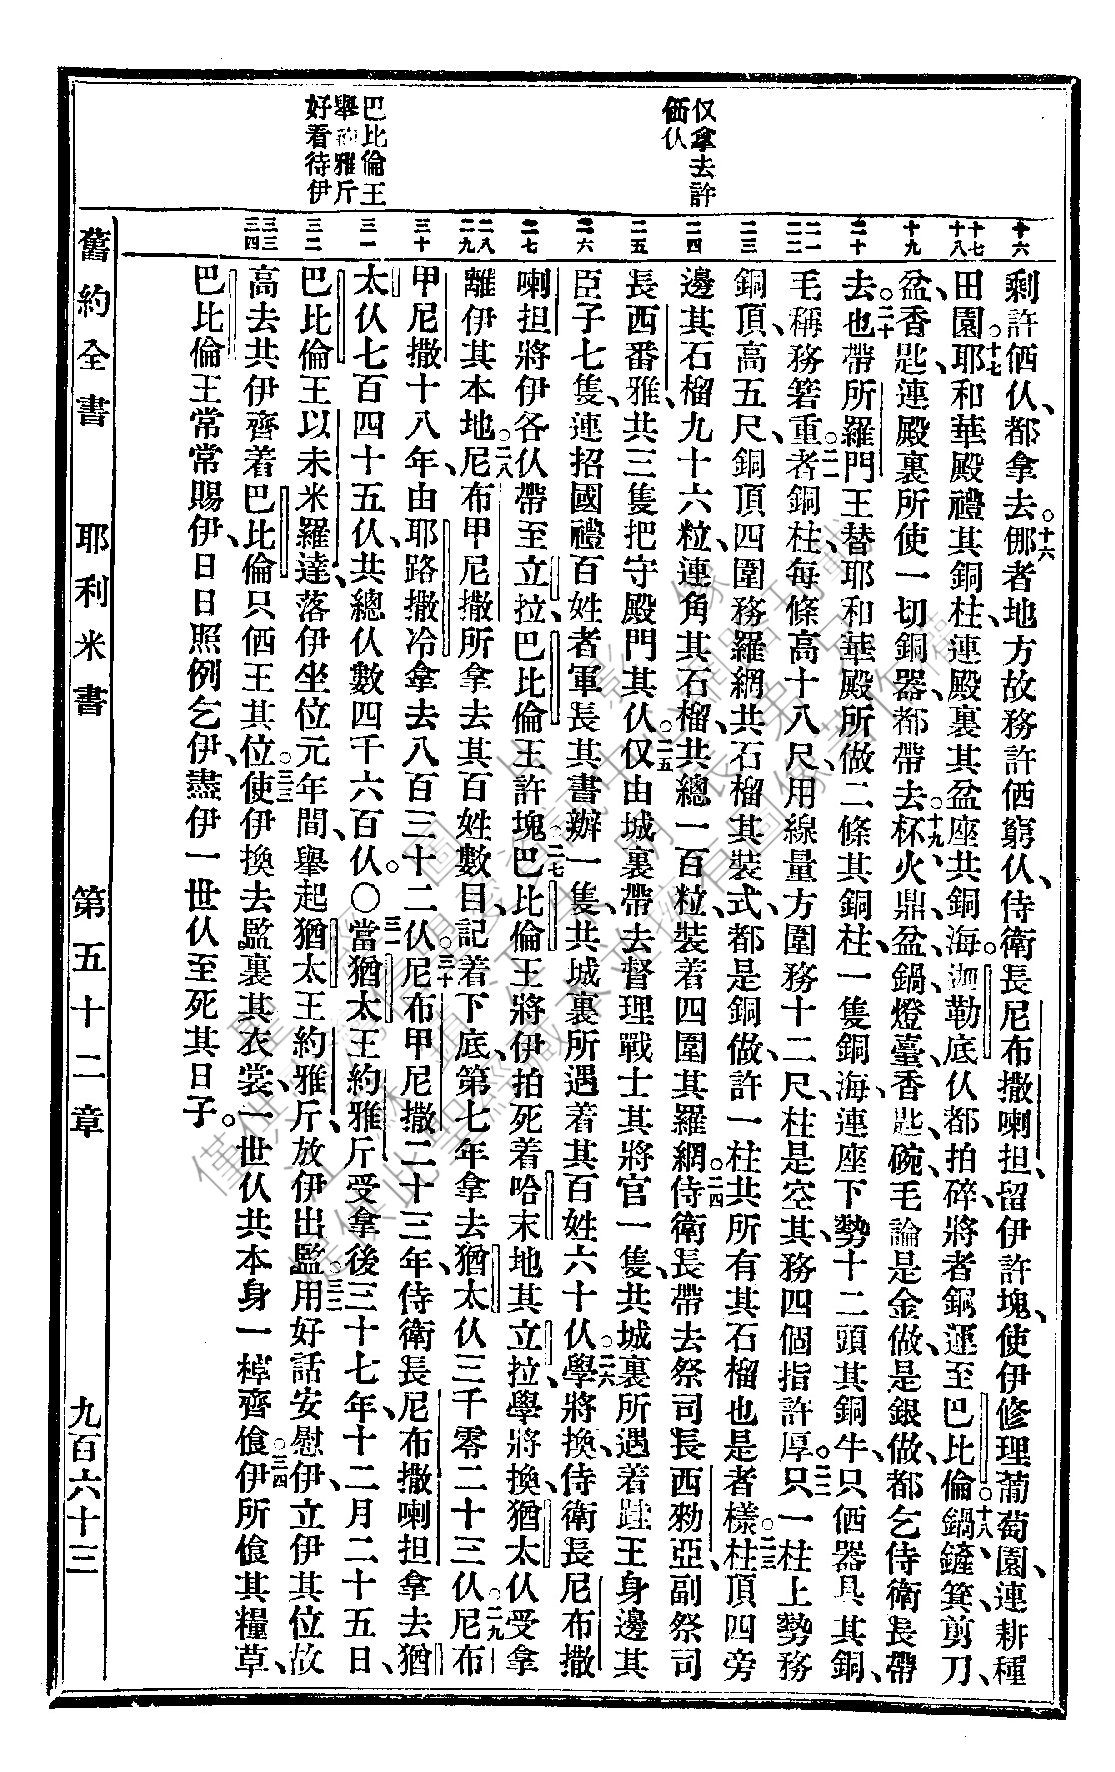 仅拿去許
個仈
巴比倫王
舉約雅斤
好看待伊
十六
十七
十八
十九
二十
二一
二二
二三
二四
二五
二六
二七
二八
二九
三十
三一
三二
三三
三四
剩許個仈、都拿去。十六㑚者地方、故務許個窮仈、侍衛長尼布撒喇担、留伊許塊、使伊修理葡萄園、連耕種
田園。十七耶和華殿禮其銅柱、連殿裏其盆座、共銅海、迦勒底仈都拍碎、將者銅運至巴比倫。十八鍋、鏟、箕、剪刀、
盆、香匙、連殿裏所使一切銅器、都帶去。十九杯、火鼎、盆、鍋、燈臺、香匙、碗、毛論是金做、是銀做、都乞侍衛長帶
去也。二十帶所羅門王替耶和華殿所做二條其銅柱、一隻銅海、連座下勢十二頭其銅牛、只個器具其銅、
毛稱務箬重。二一者銅柱、每條高十八尺、用線量方圍務十二尺、柱是空其、務四個指許厚。二二只一柱上勢務
銅頂、高五尺、銅頂四圍務羅網共石榴其裝式、都是銅做、許一柱共所有其石榴也是者樣。二三柱頂四旁
邊其石榴九十六粒、連角其石榴、共總一百粒、裝着四圍其羅網。二四侍衛長帶去祭司長西勑亞、副祭司
長西番雅、共三隻把守殿門其仈。二五仅由城裏、帶去督理戰士其將官一隻、共城裏所遇着跬王身邊其
臣子七隻、連招國禮百姓者軍長其書辦一隻、共城裏所遇着其百姓六十仈。二六學將換、侍衛長尼布撒
喇担將伊各仈帶至立拉、巴比倫王許塊。二七巴比倫王將伊拍死着哈末地其立拉、學將換猶太仈受拿
離伊其本地。二八尼布甲尼撒所拿去其百姓數目、記着下底、第七年拿去猶太仈三千零二十三仈。二九尼布
甲尼撒十八年、由耶路撒冷拿去八百三十二仈。三十尼布甲尼撒二十三年、侍衛長尼布撒喇担拿去猶
太仈七百四十五仈、共總仈數四千六百仈。○三一當猶太王約雅斤受拿後三十七年、十二月二十五日、
巴比倫王以未米羅達、落伊坐位元年間、舉起猶太王約雅斤放伊出監。三二用好話安慰伊、立伊其位故
高去共伊齊着巴比倫只個王其位。三三使伊換去監裏其衣裳、一世仈共本身一棹齊飡。三四伊所飡其糧草、
巴比倫王常常賜伊、日日照例乞伊、盡伊一世仈至死其日子。
舊約全書　耶利米書　第五十二章　九百六十三